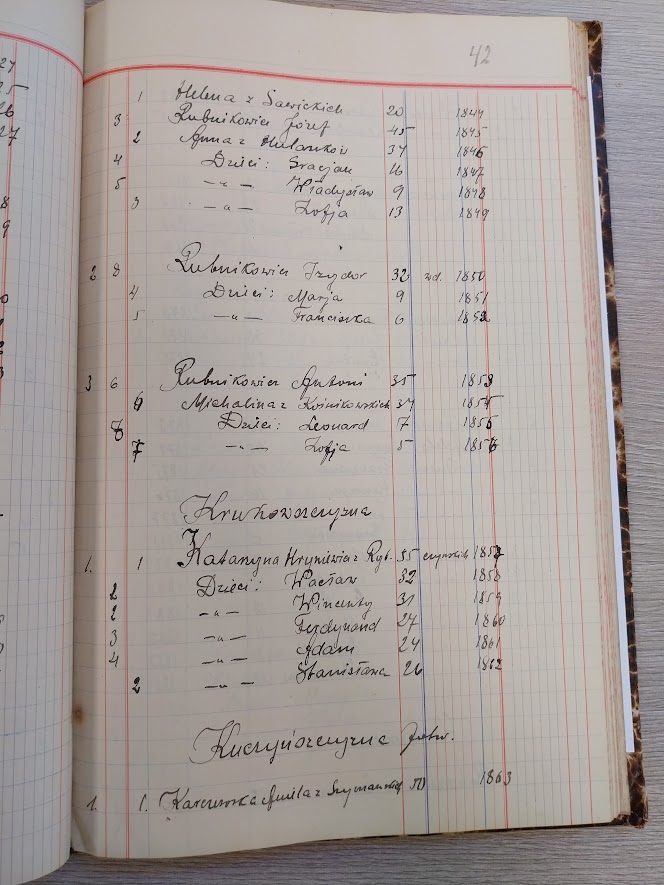 27
25
26
27
8
9
42
1 Helena z Sawickich 20 1844
3 Rubnikowicz Józef 45 1845
2 Anna z 34 1846
4 Dzieci: Gracjan 16 1847
5 —„— Władysław 9 1848
3 —„— Zofja 13 1849
2 8 Rubnikowicz Izydor 32 wd. 1850
4 Dzieci: Marja 9 1851
5 —„— Franciszka 6 1852
3 6 Rubnikowicz Antoni 35 1853
6 Michalina z Koźnikowskich 34 1854
8 Dzieci: Leonard 7 1855
7 —„— Zofja 5 1856
Krukowszczyzna
1. 1 Katarzyna Hryniewicz z Ryb. 55 czyńskich 1857
2 Dzieci: Wacław 32 1858
2 —„— Wincenty 31 1859
3 —„— Ferdynand 27 1860
4 —„— Adam 24 1861
2 —„— Stanisława 26 1862
Kuczyńszczyzna folw.
1. 1. Karczewska Amila z Szymańskich 50 1863